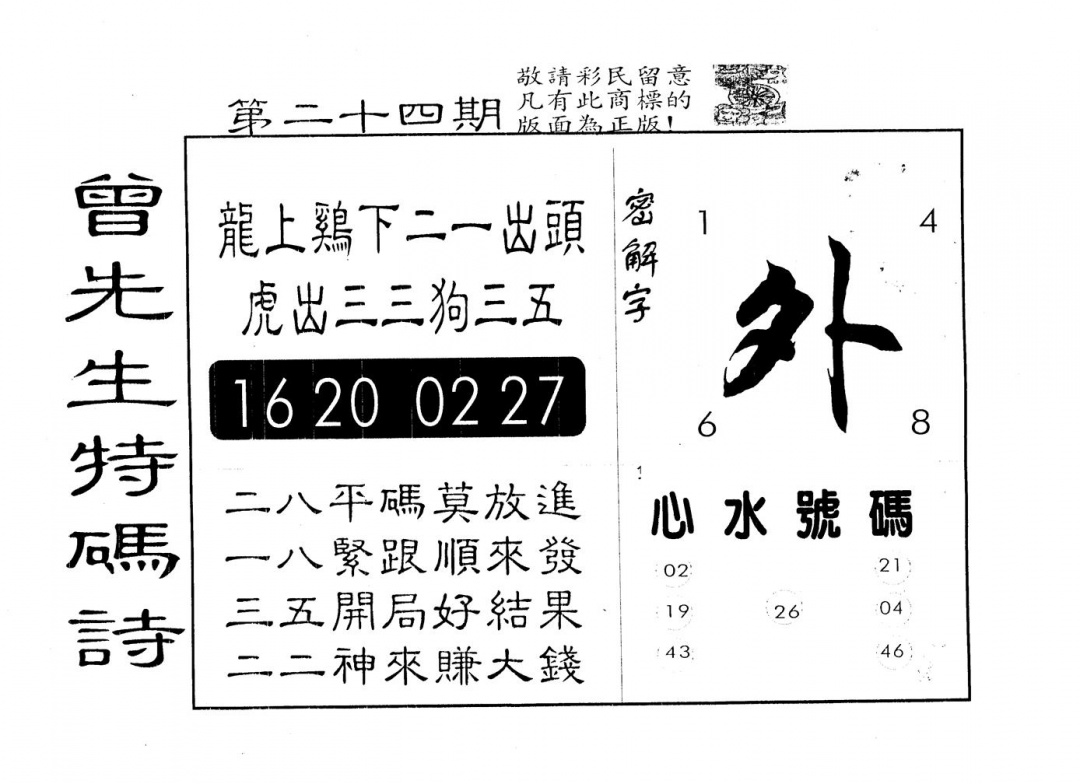 敬請彩民留意
凡有此商標的
版面為正版!
第二十四期
曾先生特碼詩
龍上鷄下二一出頭
虎出三三狗三五
16 20 02 27
二八平碼莫放進
一八緊跟順來發
三五開局好結果
二二神來賺大錢
密解字
1 4
外
6 8
1
心水號碼
02 21
19 26 04
43 46